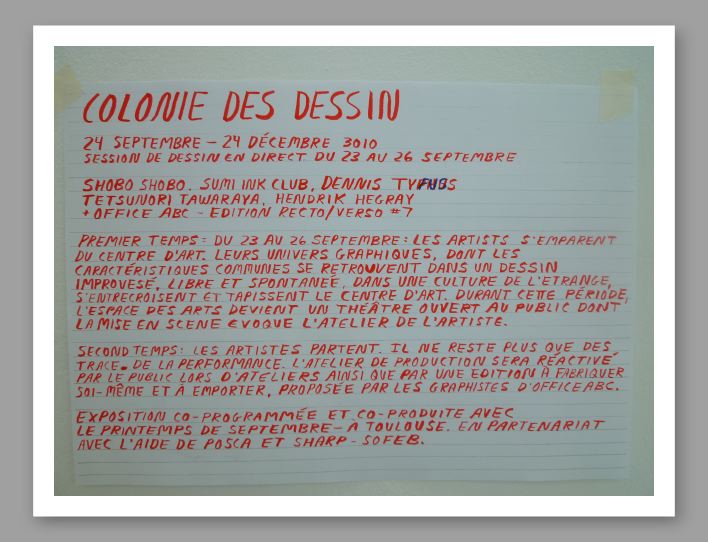 COLONIE DES DESSIN
24 SEPTEMBRE – 24 DÉCEMBRE 3010
SESSION DE DESSIN EN DIRECT DU 23 AU 26 SEPTEMBRE
SHOBO SHOBO. SUMI INK CLUB, DENNIS TYFUS
TETSUNORI TAWARAYA, HENDRIK HEGRAY
+ OFFICE ABC - EDITION RECTO/VERSO #7
PREMIER TEMPS: DU 23 AU 26 SEPTEMBRE: LES ARTISTS S'EMPARENT
DU CENTRE D'ART. LEURS UNIVERS GRAPHIQUES, DONT LES
CARACTÉRISTIQUES COMMUNES SE RETROUVENT DANS UN DESSIN
IMPROVESÉ, LIBRE ET SPONTANEÉ, DANS UNE CULTURE DE L'ETRANGE,
S'ENTRECROISENT ET TAPISSENT LE CENTRE D'ART. DURANT CETTE PÉRIODE,
L'ESPACE DES ARTS DEVIENT UN THÉÂTRE OUVERT AU PUBLIC DONT
LA MISE EN SCENE EVOQUE L'ATELIER DE L'ARTISTE.
SECOND TEMPS: LES ARTISTES PARTENT. IL NE RESTE PLUS QUE DES
TRACE. DE LA PERFORMANCE. L'ATELIER DE PRODUCTION SERA RÉACTIVÉ
PAR LE PUBLIC LORS D'ATELIERS AINSI QUE PAR UNE EDITION À FABRIQUER
SOI-MÊME ET À EMPORTER, PROPOSÉE PAR LES GRAPHISTES D'OFFICEABC.
EXPOSITION CO-PROGRAMMÉE ET CO-PRODUITE AVEC
LE PRINTEMPS DE SEPTEMBRE – À TOULOUSE. EN PARTENARIAT
AVEC L'AIDE DE POSCA ET SHARP - SOFEB.